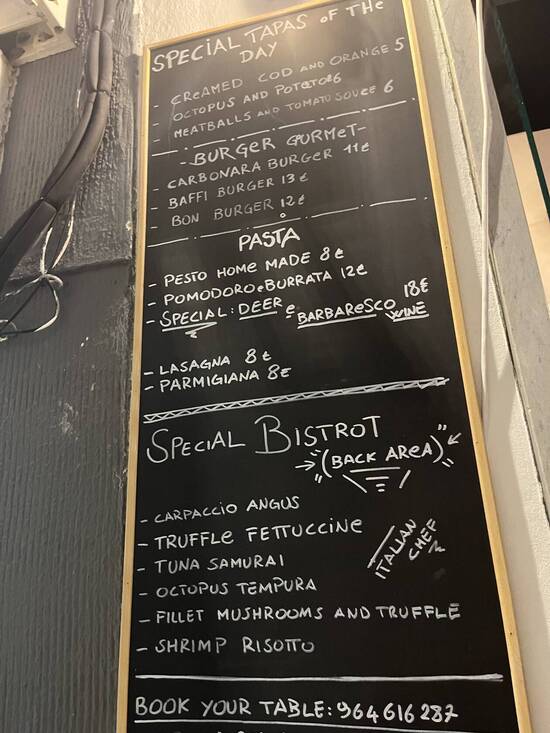 SPECIAL TAPAS OF THE
DAY
- CREAMED COD AND ORANGE 5
- OCTOPUS AND POTATO 6
- MEATBALLS AND TOMATO SOUCE 6
- BURGER GURMET -
- CARBONARA BURGER 11€
- BAFFI BURGER 13€
- BON BURGER 12€
PASTA
- PESTO HOME MADE 8€
- POMODORO e BURRATA 12€
- SPECIAL: DEER e BARBARESCO WINE 18€
- LASAGNA 8€
- PARMIGIANA 8€
SPECIAL BISTROT
→ (BACK AREA) ←
- CARPACCIO ANGUS
- TRUFFLE FETTUCCINE
- TUNA SAMURAI
- OCTOPUS TEMPURA
- FILLET MUSHROOMS AND TRUFFLE
- SHRIMP RISOTTO
ITALIAN
CHEF
BOOK YOUR TABLE: 964 616 287